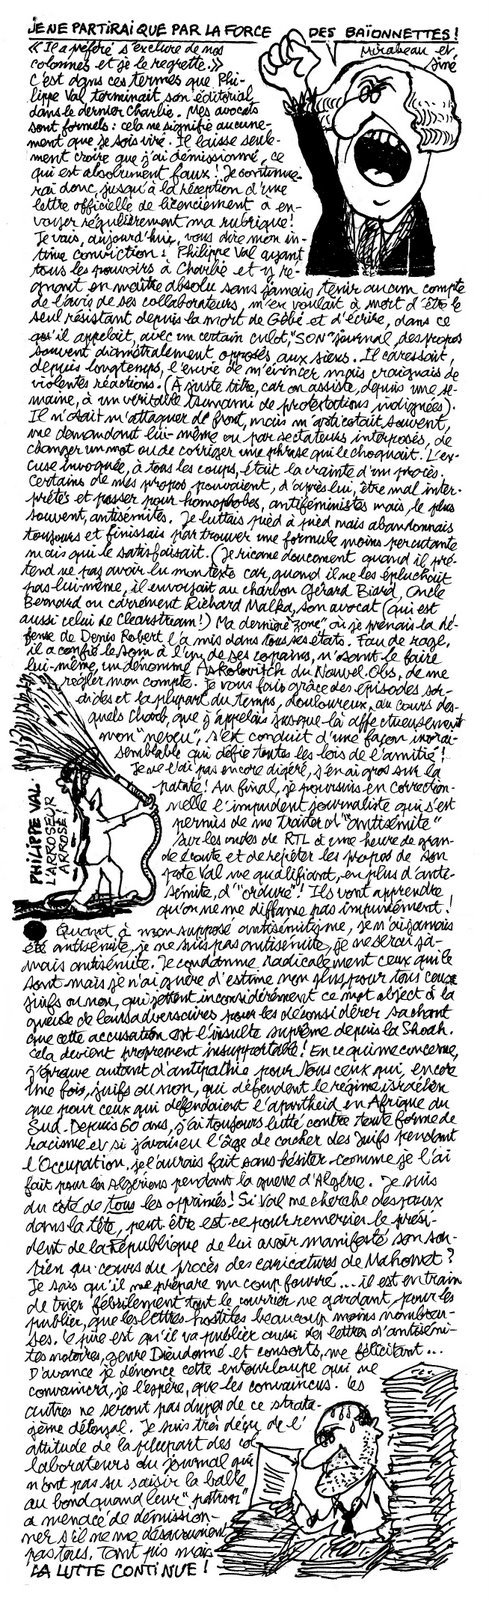 JE NE PARTIRAI QUE PAR LA FORCE DES BAÏONNETTES !
Mirabeau et
Siné
« Il a préféré s'exclure de nos
colonnes et je le regrette.»
C'est dans ces termes que Phi-
lippe Val terminait son éditorial
dans le dernier Charlie. Mes avocats
sont formels : cela ne signifie aucune-
ment que je sois viré. Il laisse seule-
ment croire que j'ai démissionné, ce
qui est absolument faux ! Je continue-
rai donc, jusqu'à la réception d'une
lettre officielle de licenciement à en-
voyer régulièrement ma rubrique !
Je vais, aujourd'hui, vous dire mon in-
time conviction : Philippe Val ayant
tous les pouvoirs à Charlie et y ré-
gnant en maître absolu sans jamais tenir aucun compte
de l'avis de ses collaborateurs, m'en voulait à mort d'être le
seul résistant depuis la mort de Gébé et d'écrire, dans ce
qu'il appelait, avec un certain culot, "SON" journal, des propos
souvent diamétralement opposés aux siens. Il caressait,
depuis longtemps, l'envie de m'évincer mais craignait de
violentes réactions. (A juste titre, car on assiste, depuis une se-
maine, à un véritable tsunami de protestations indignées).
Il n'osait m'attaquer de front, mais m'asticotait souvent,
me demandant lui-même ou par sectateurs interposés, de
changer un mot ou de corriger une phrase qui le choquait. L'ex-
cuse invoquée, à tous les coups, était la crainte d'un procès.
Certains de mes propos pouvaient, d'après lui, être mal inter-
prétés et passer pour homophobes, antiféministes mais le plus
souvent, antisémites. Je luttais pied à pied mais abandonnais
toujours et finissais par trouver une formule moins percutante
mais qui le satisfaisait. (Je ricane doucement quand il pré-
tend ne pas avoir lu mon texte car, quand il ne les épluchait
pas lui-même, il envoyait au charbon Gérard Biard, Oncle
Bernard ou carrément Richard Malka, son avocat (qui est
aussi celui de Clearstream !) Ma dernière "zone" où je prenais la dé-
fense de Denis Robert l'a mis dans tous ses états. Fou de rage,
il a confié le soin à l'un de ses copains, n'osant le faire
lui-même, un dénommé Askolovitch du Nouvel Obs, de me
régler mon compte. Je vous fais grâce des épisodes sor-
dides et la plupart du temps, douloureux, au cours des-
quels Charb, que j'appelais jusque-là affectueusement
mon "neveu", s'est conduit d'une façon invrai-
semblable qui défie toutes les lois de l'amitié !
Je ne l'ai pas encore digéré, j'en ai gros sur la
patate ! Au final, je poursuis en correction-
nelle l'impudent journaliste qui s'est
permis de me traiter d'"antisémite"
sur les ondes de RTL à une heure de gran-
de écoute et de répéter les propos de son
pote Val me qualifiant, en plus d'anti-
sémite, d'"ordure" ! Ils vont apprendre
qu'on ne me diffame pas impunément !
PHILIPPE VAL.
L'ARROSEUR
ARROSÉ !
Quant à mon supposé antisémitisme, je n'ai jamais
été antisémite, je ne suis pas antisémite, je ne serai ja-
mais antisémite. Je condamne radicalement ceux qui le
sont mais je n'ai guère d'estime non plus pour tous ceux,
juifs ou non, qui jettent inconsidérément ce mot abject à la
gueule de leurs adversaires pour les déconsidérer sachant
que cette accusation est l'insulte suprême depuis la Shoah.
Cela devient proprement insupportable ! En ce qui me concerne,
j'éprouve autant d'antipathie pour tous ceux qui, encore
une fois, juifs ou non, qui défendent le régime israélien
que pour ceux qui défendaient l'apartheid en Afrique du
Sud. Depuis 60 ans, j'ai toujours lutté contre toute forme de
racisme et si j'avais eu l'âge de cacher des Juifs pendant
l'Occupation, je l'aurais fait sans hésiter comme je l'ai
fait pour les Algériens pendant la guerre d'Algérie. Je suis
du côté de tous les opprimés ! Si Val me cherche des poux
dans la tête, peut être est-ce pour remercier le prési-
dent de la République de lui avoir manifesté son sou-
tien au cours du procès des caricatures de Mahomet ?
Je sais qu'il me prépare un coup fourré... il est en train
de trier fébrilement tout le courrier ne gardant, pour les
publier, que les lettres hostiles beaucoup moins nombreu-
ses. Le pire est qu'il va publier aussi des lettres d'antisémi-
tes notoires, genre Dieudonné et consorts, me félicitant...
D'avance je dénonce cette entourloupe qui ne
convaincra, je l'espère, que les convaincus. Les
autres ne seront pas dupes de ce strata-
gème déloyal. Je suis très déçu de l'
attitude de la plupart des col
laborateurs du journal qui
n'ont pas su saisir la balle
au bond quand leur "patron"
a menacé de démission-
ner s'ils ne me désavouaient
pas tous. Tant pis mais
LA LUTTE CONTINUE !